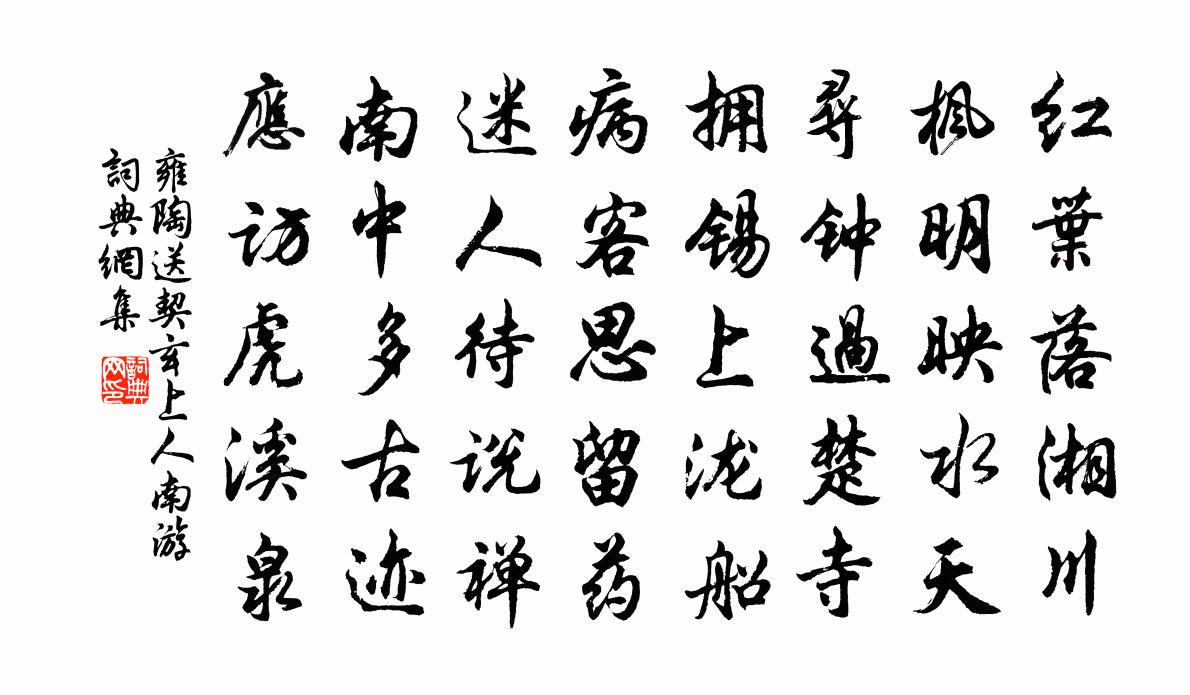 红葉落湘川
枫明映水天
尋钟過楚寺
拥锡上泷船
病客思留药
迷人待说禅
南中多古迹
應访虎溪泉
雍陶送契玄上人南游
詞典網集
詞典网印